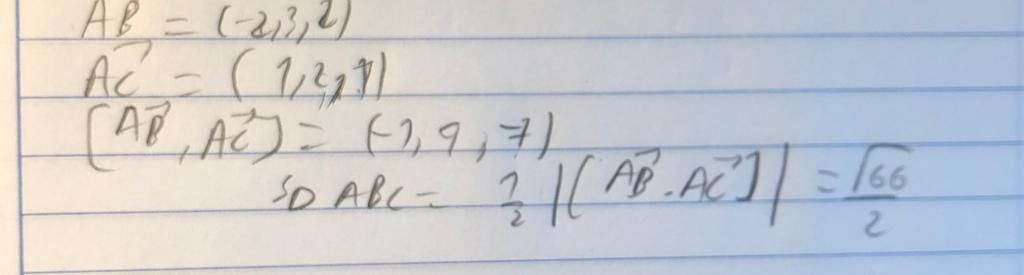 AB = (-2,3,2)
AC = (1,2,1)
[AB, AC] = (-1, 4, -7)
SD ABC = 1/2 |[AB . AC]| = √66/2